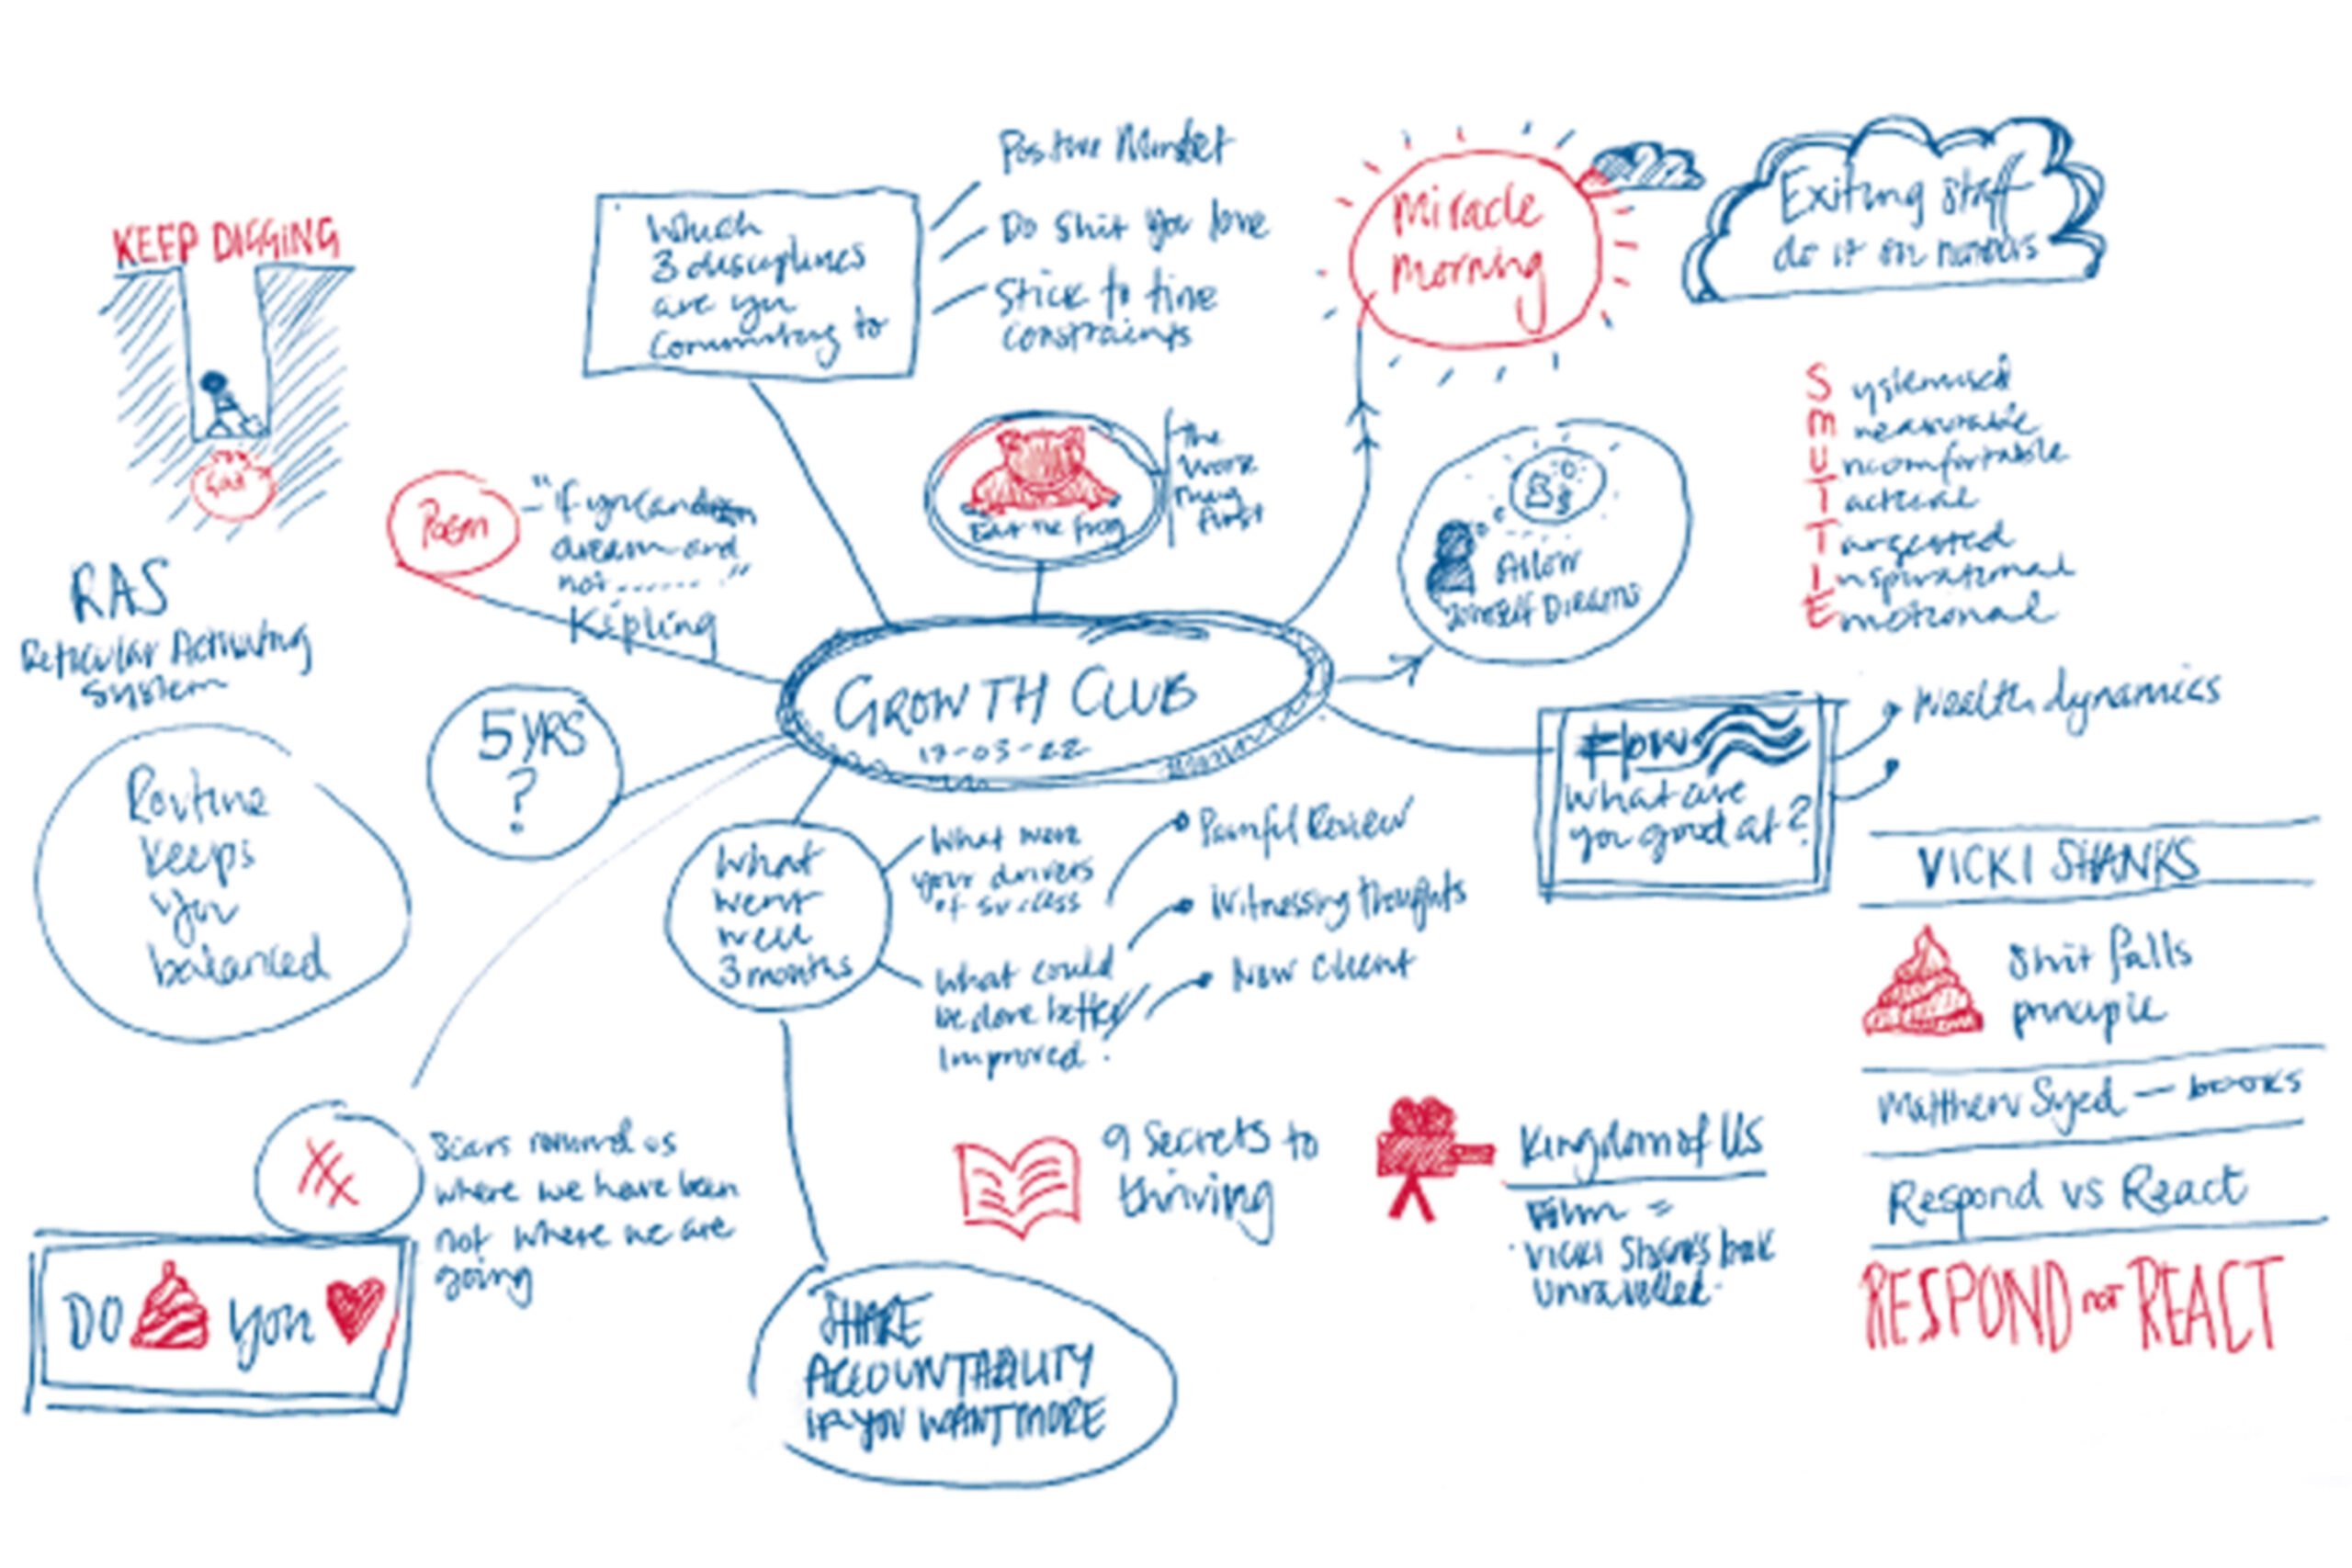 KEEP DIGGING
RAS
Reticular Activating
System
Routine
keeps
you
balanced
Poem
"if you can
dream and
not ........"
Kipling
5 YRS
?
Which
3 disciplines
are you
committing to
Positive Mindset
Do shit you love
Stick to time
constraints
Eat the frog
The
Work
thing
first
Miracle
Morning
Exiting staff
do it on numbers
Allow
Yourself Dreams
Systemised
Measurable
Uncomfortable
Tactical
Targetted
Inspirational
Emotional
GROWTH CLUB
17-03-22
Flow
What are
you good at?
Wealth dynamics
What
went
well
3 months
What were
your drivers
of success
What could
be done better/
Improved.
Painful Review
Witnessing thoughts
New Client
VICKI SHANKS
Shit falls
principle
Matthew Syed — books
Respond vs React
RESPOND not REACT
Scars remind us
where we have been
not where we are
going
DO you
9 Secrets to
thriving
Kingdom of US
Film =
Vicki Shanks book
Unravelled.
SHARE
ACCOUNTABILITY
IF YOU WANT MORE